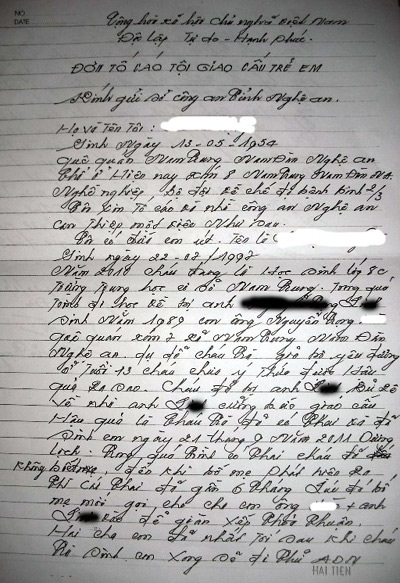 NO
DATE
Cộng hòa xã hội chủ nghĩa Việt Nam
Độc lập Tự do - Hạnh phúc.
ĐƠN TỐ CÁO TỘI GIAO CẤU TRẺ EM
Kính gửi Sở công an Tỉnh Nghệ an.
Họ và Tên Tôi :
Sinh Ngày 13-05-1954
quê quán Nam Trung Nam Đàn Nghệ an
Hiện nay xóm 8 Nam Trung Nam Đàn NA.
Nghề nghiệp. Bộ đội chế độ bệnh binh 2/3
Tôi xin Tố cáo nhờ công an Nghệ an
can Thiệp một Như sau.
Tôi có em út. Tên là
Sinh ngày 22-02-1997
Năm 2010 cháu đang là Học sinh lớp 8c
Trường Trung học cơ sở Nam Trung. Trong quá
Trình đi học bị anh
Sinh Năm 1989 con ông Nguyễn
quê quán xóm 7 xã Nam Trung Nam Đàn
Nghệ an. dụ dỗ cháu giả bộ yêu đương
ở Tuổi 13 cháu chưa ý Thức được Hậu
quả Ra sao. Cháu đã bị anh
về nhà anh cưỡng bức giao cấu
Hậu quả là cháu đã có Thai và đã
Sinh em ngày 21 Tháng 9 Năm 2011 Dương
Lịch. Trong quá Trình có Thai cháu
Không bố mẹ, đến khi bố mẹ Phát hiện Ra
Thì cái Thai đã gần 6 Tháng đó bố
mẹ mới gọi cha con ông + anh
đã giàn xếp Thỏa Thuận.
Hai cha con đã nhất Trí sau khi cháu
Sinh em xong sẽ đi Thử ADN
HAI TIEN